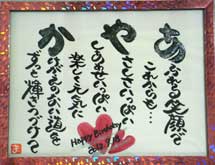 あなたの笑顔で
これからも…
やさしさいっぱい
しあわせいっぱい
楽しく元気に
かけがえのない道を
ずっと輝きつづけて
Happy Birthday